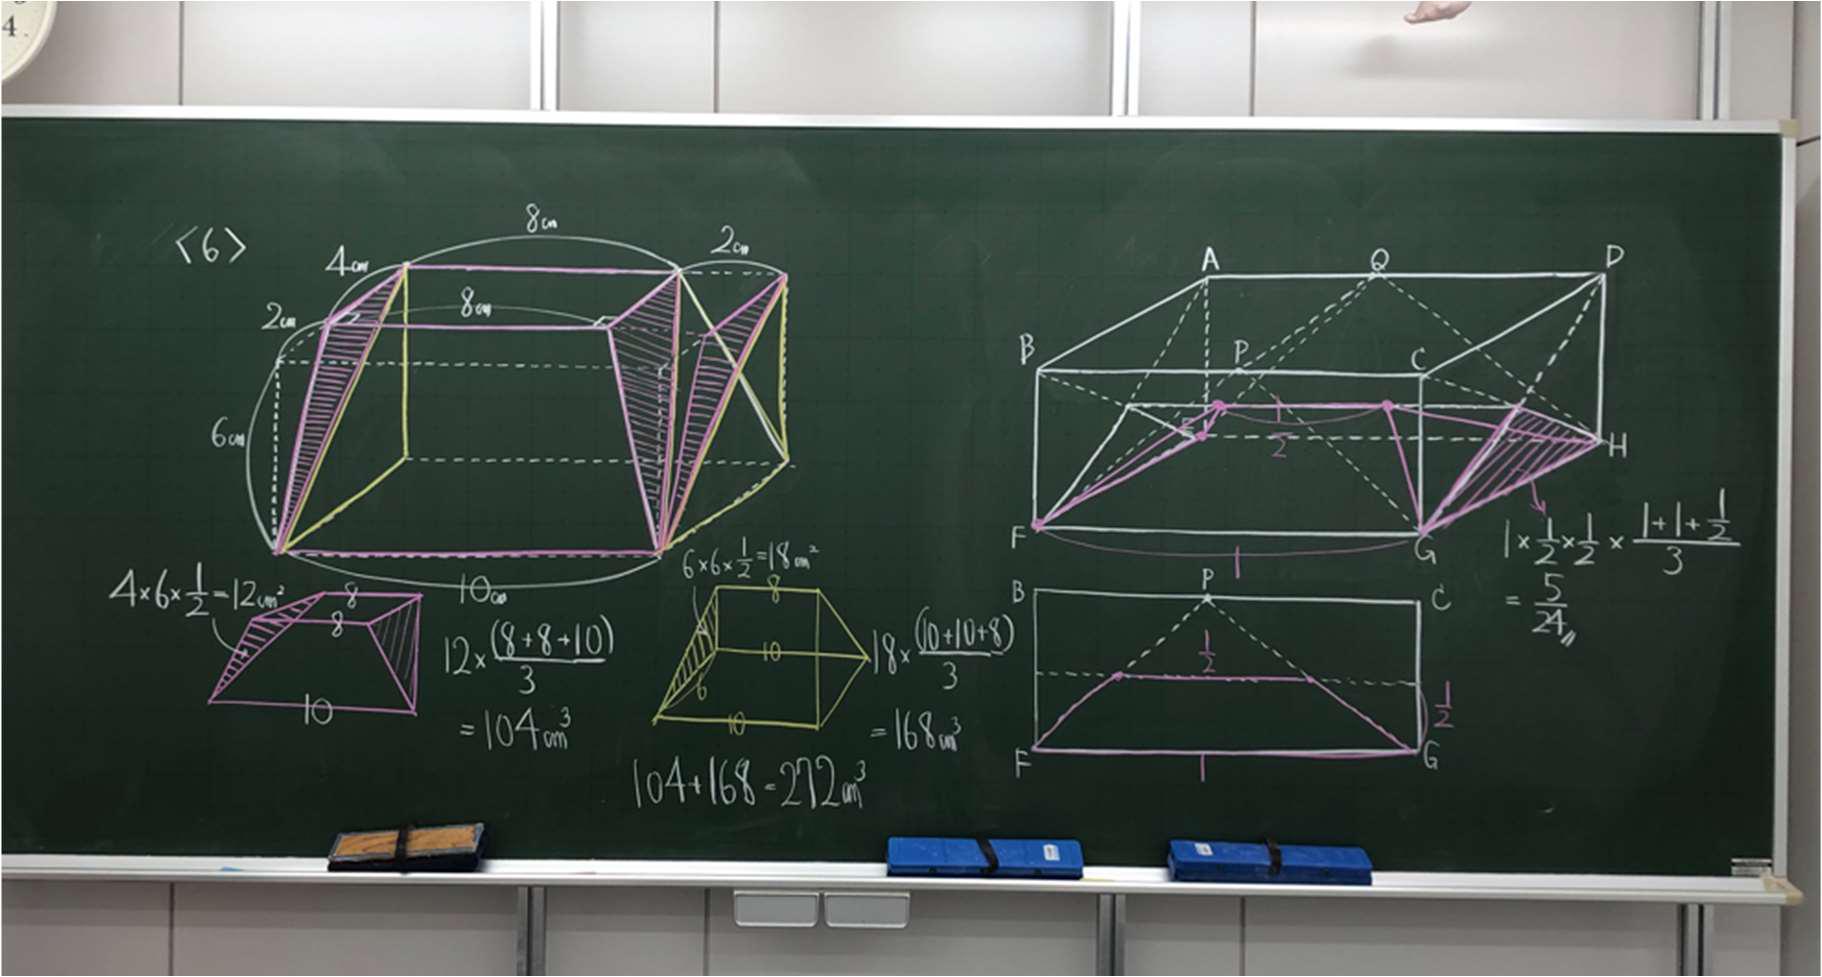 4
<6>
8cm
4cm
2cm
8cm
2cm
6cm
10cm
4×6×1/2=12cm²
8
8
10
12×(8+8+10)/3
=104cm³
6×6×1/2=18cm²
8
10
6
10
18×(10+10+8)/3
=168cm³
104+168=272cm³
A
Q
D
B
P
C
E
1/2
H
F
G
1
1×1/2×1/2×(1+1+1/2)/3
=5/24
B
P
C
1/2
1/2
F
G
1